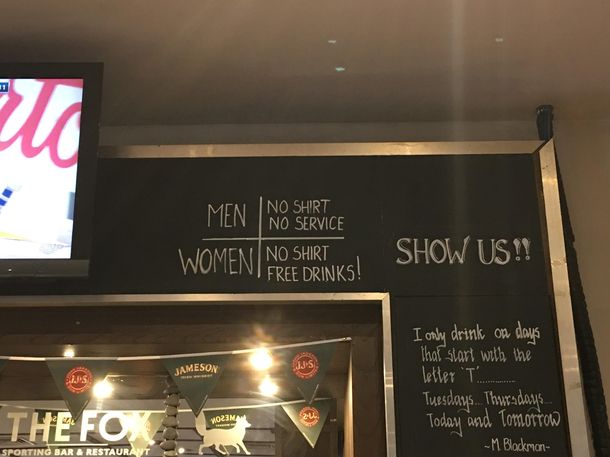 MEN
NO SHIRT
NO SERVICE
WOMEN
NO SHIRT
FREE DRINKS!
SHOW US!!
I only drink on days
that start with the
letter 'T'............
Tuesdays... Thursdays...
Today and Tomorrow
~M. Blackman~
J.J&S
JAMESON
IRISH WHISKEY
J.J&S
THE FOX
SPORTING BAR & RESTAURANT
JAMESON
J.J&S